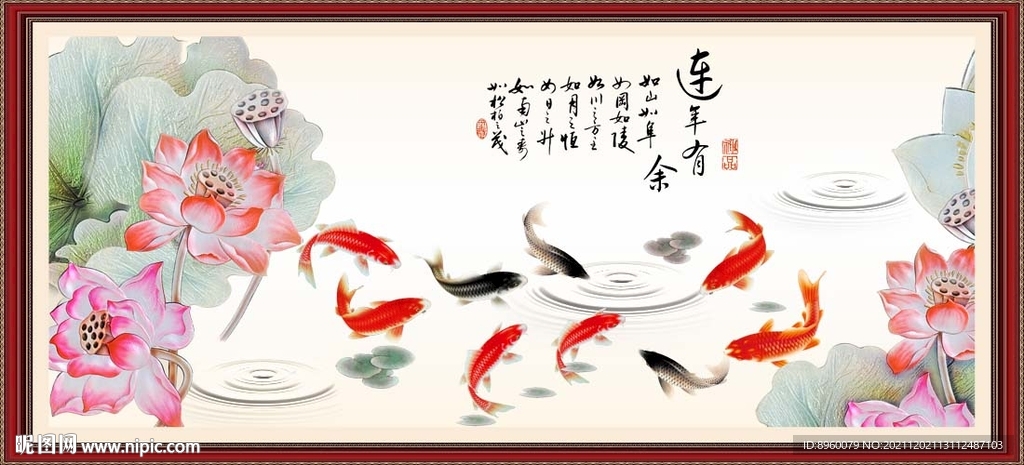 连年有
余
如山如阜
如冈如陵
如川之方至
如月之恒
如日之升
如南山之寿
如松柏之茂
昵图网 www.nipic.com
ID:8960079 NO:20211202113112487103